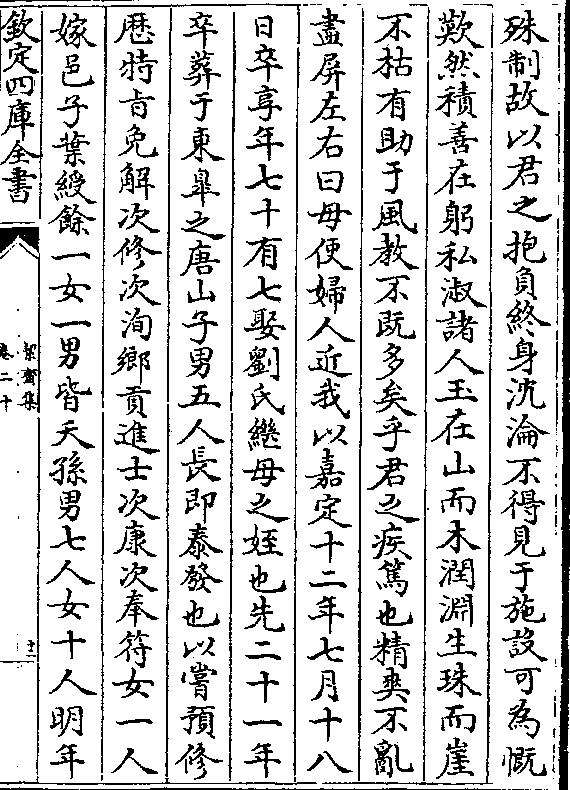 殊制故以君之抱負終身沉淪不得見于施設可為慨
歎然積善在躬私淑諸人玉在山而木潤淵生珠而崖
不枯有助于風教不既多矣乎君之疾篤也精爽不亂
盡屏左右曰毋使婦人近我以嘉定十二年七月十八
日卒享年七十有七娶劉氏繼母之姪也先二十一年
卒葬于東臯之唐山子男五人長即泰發也以嘗預修
厯特旨免解次修次洵鄉貢進士次康次奉符女一人
嫁邑子葉綬餘一女一男皆夭孫男七人女十人明年
欽定四庫全書
絜齋集
卷二十